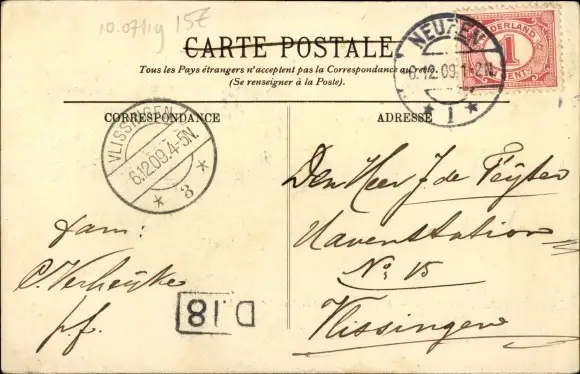 10.07/19 15€
CARTE POSTALE
Tous les Pays étrangers n'acceptent pas la Correspondance au recto.
(Se renseigner à la Poste).
NEUZEN
6.12.09.1-2N.
* 1 *
NEDERLAND
1
CENT
CORRESPONDANCE
ADRESSE
VLISSINGEN
6.12.09.4-5N.
* 3 *
Den Heer J de Feijter
Havenstation
No 15
Vlissingen
fam:
C. Verheijke
p.f.
D.18